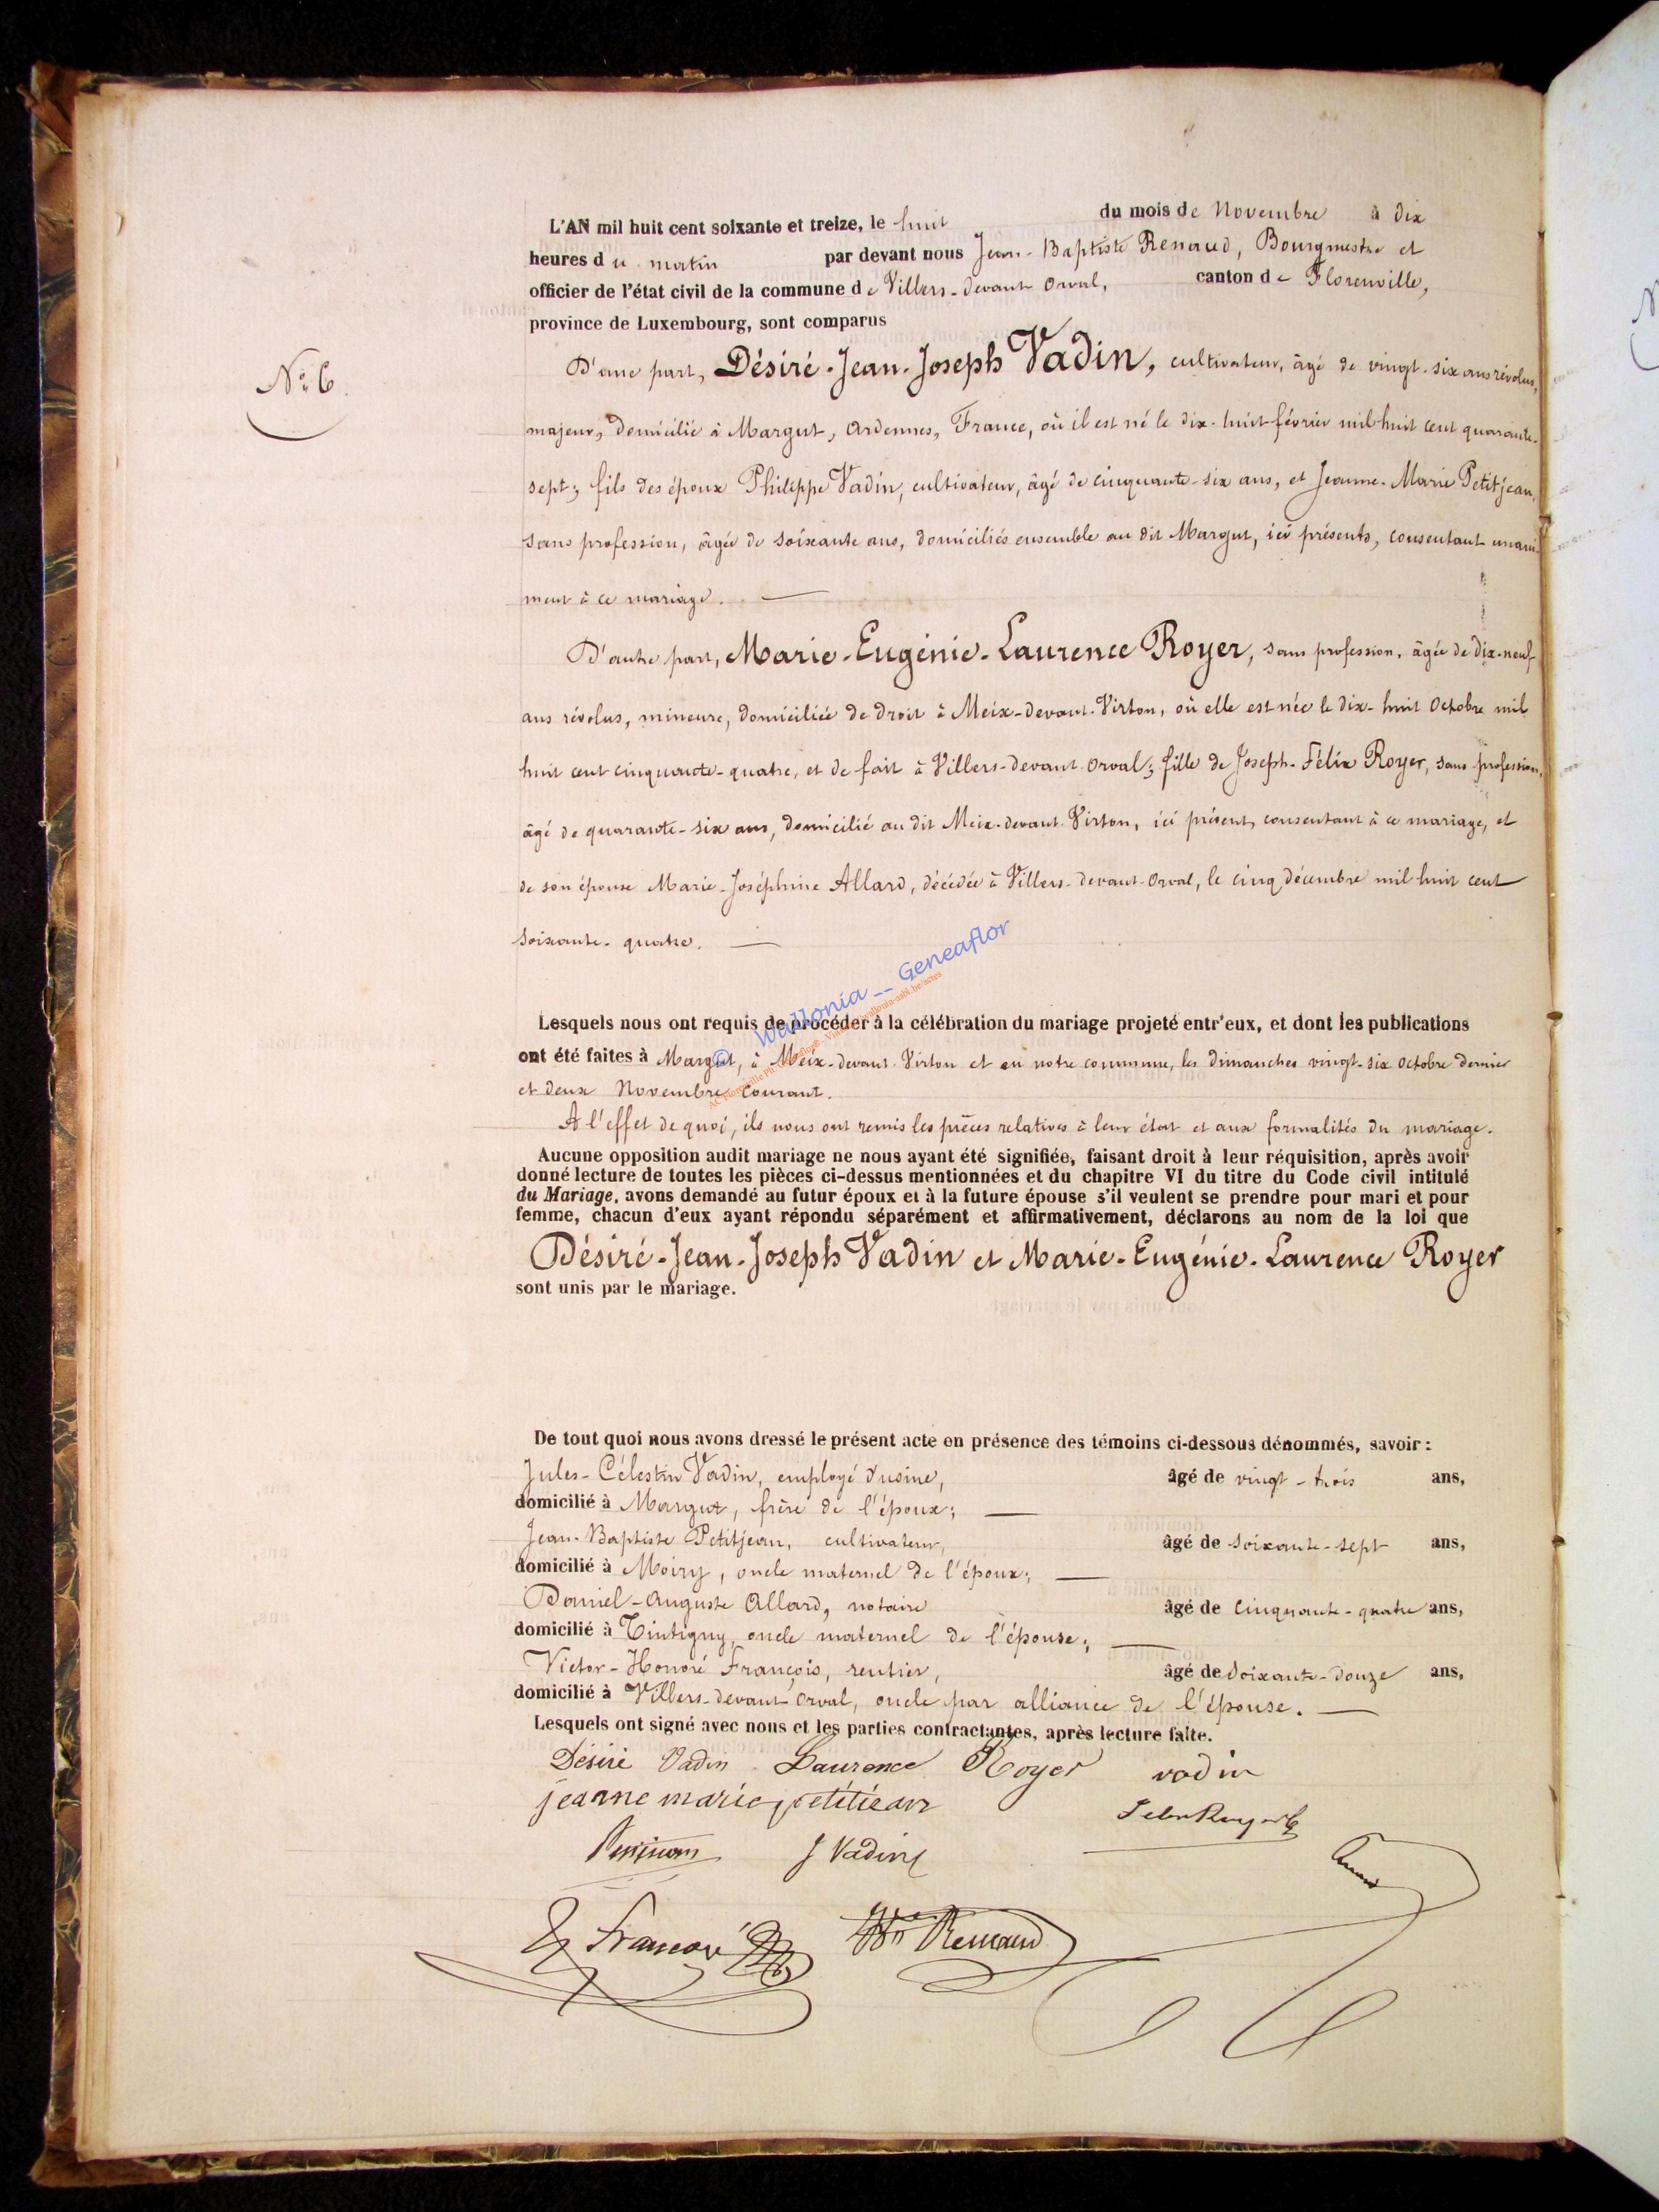 L'AN mil huit cent soixante et treize, le huit du mois de Novembre à dix
heures du matin par devant nous Jean-Baptiste Renaud, Bourgmestre et
officier de l'état civil de la commune de Villers-devant Orval, canton de Florenville,
province de Luxembourg, sont comparus
N° 6.
D'une part, Désiré-Jean-Joseph Vadin, cultivateur, âgé de vingt-six ans révolus,
majeur, domicilié à Margut, Ardennes, France, où il est né le dix-huit février mil huit cent quarante-
sept; fils des époux Philippe Vadin, cultivateur, âgé de cinquante-six ans, et Jeanne-Marie Petitjean,
sans profession, âgée de soixante ans, domiciliés ensemble au dit Margut, ici présents, consentant unani-
ment à ce mariage.
D'autre part, Marie-Eugénie-Laurence Royer, sans profession, âgée de dix-neuf
ans révolus, mineure, domiciliée de droit à Meix-devant-Virton, où elle est née le dix-huit Octobre mil
huit cent cinquante-quatre, et de fait à Villers-devant-Orval; fille de Joseph-Félix Royer, sans profession,
âgé de quarante-six ans, domicilié au dit Meix-devant-Virton, ici présent, consentant à ce mariage, et
de son épouse Marie-Joséphine Allard, décédée à Villers-devant-Orval, le cinq décembre mil huit cent
soixante-quatre.
© Wallonia -- Geneaflor
Lesquels nous ont requis de procéder à la célébration du mariage projeté entr'eux, et dont les publications
ont été faites à Margut, à Meix-devant-Virton et en notre commune, les dimanches vingt-six Octobre dernier
et deux Novembre courant.
A l'effet de quoi, ils nous ont remis les pièces relatives à leur état et aux formalités du mariage.
Aucune opposition audit mariage ne nous ayant été signifiée, faisant droit à leur réquisition, après avoir
donné lecture de toutes les pièces ci-dessus mentionnées et du chapitre VI du titre du Code civil intitulé
du Mariage, avons demandé au futur époux et à la future épouse s'il veulent se prendre pour mari et pour
femme, chacun d'eux ayant répondu séparément et affirmativement, déclarons au nom de la loi que
Désiré-Jean-Joseph Vadin et Marie-Eugénie-Laurence Royer
sont unis par le mariage.
De tout quoi nous avons dressé le présent acte en présence des témoins ci-dessous dénommés, savoir :
Jules-Célestin Vadin, employé d'usine, âgé de vingt-trois ans,
domicilié à Margut, frère de l'époux;
Jean-Baptiste Petitjean, cultivateur, âgé de soixante-sept ans,
domicilié à Moiry, oncle maternel de l'époux;
Daniel-Auguste Allard, notaire âgé de cinquante-quatre ans,
domicilié à Tintigny, oncle maternel de l'épouse;
Victor-Honoré François, rentier, âgé de soixante-douze ans,
domicilié à Villers-devant Orval, oncle par alliance de l'épouse.
Lesquels ont signé avec nous et les parties contractantes, après lecture faite.
Désiré Vadin Laurence Royer vadin
jeanne marie petitiean
J Vadin
François Renaud